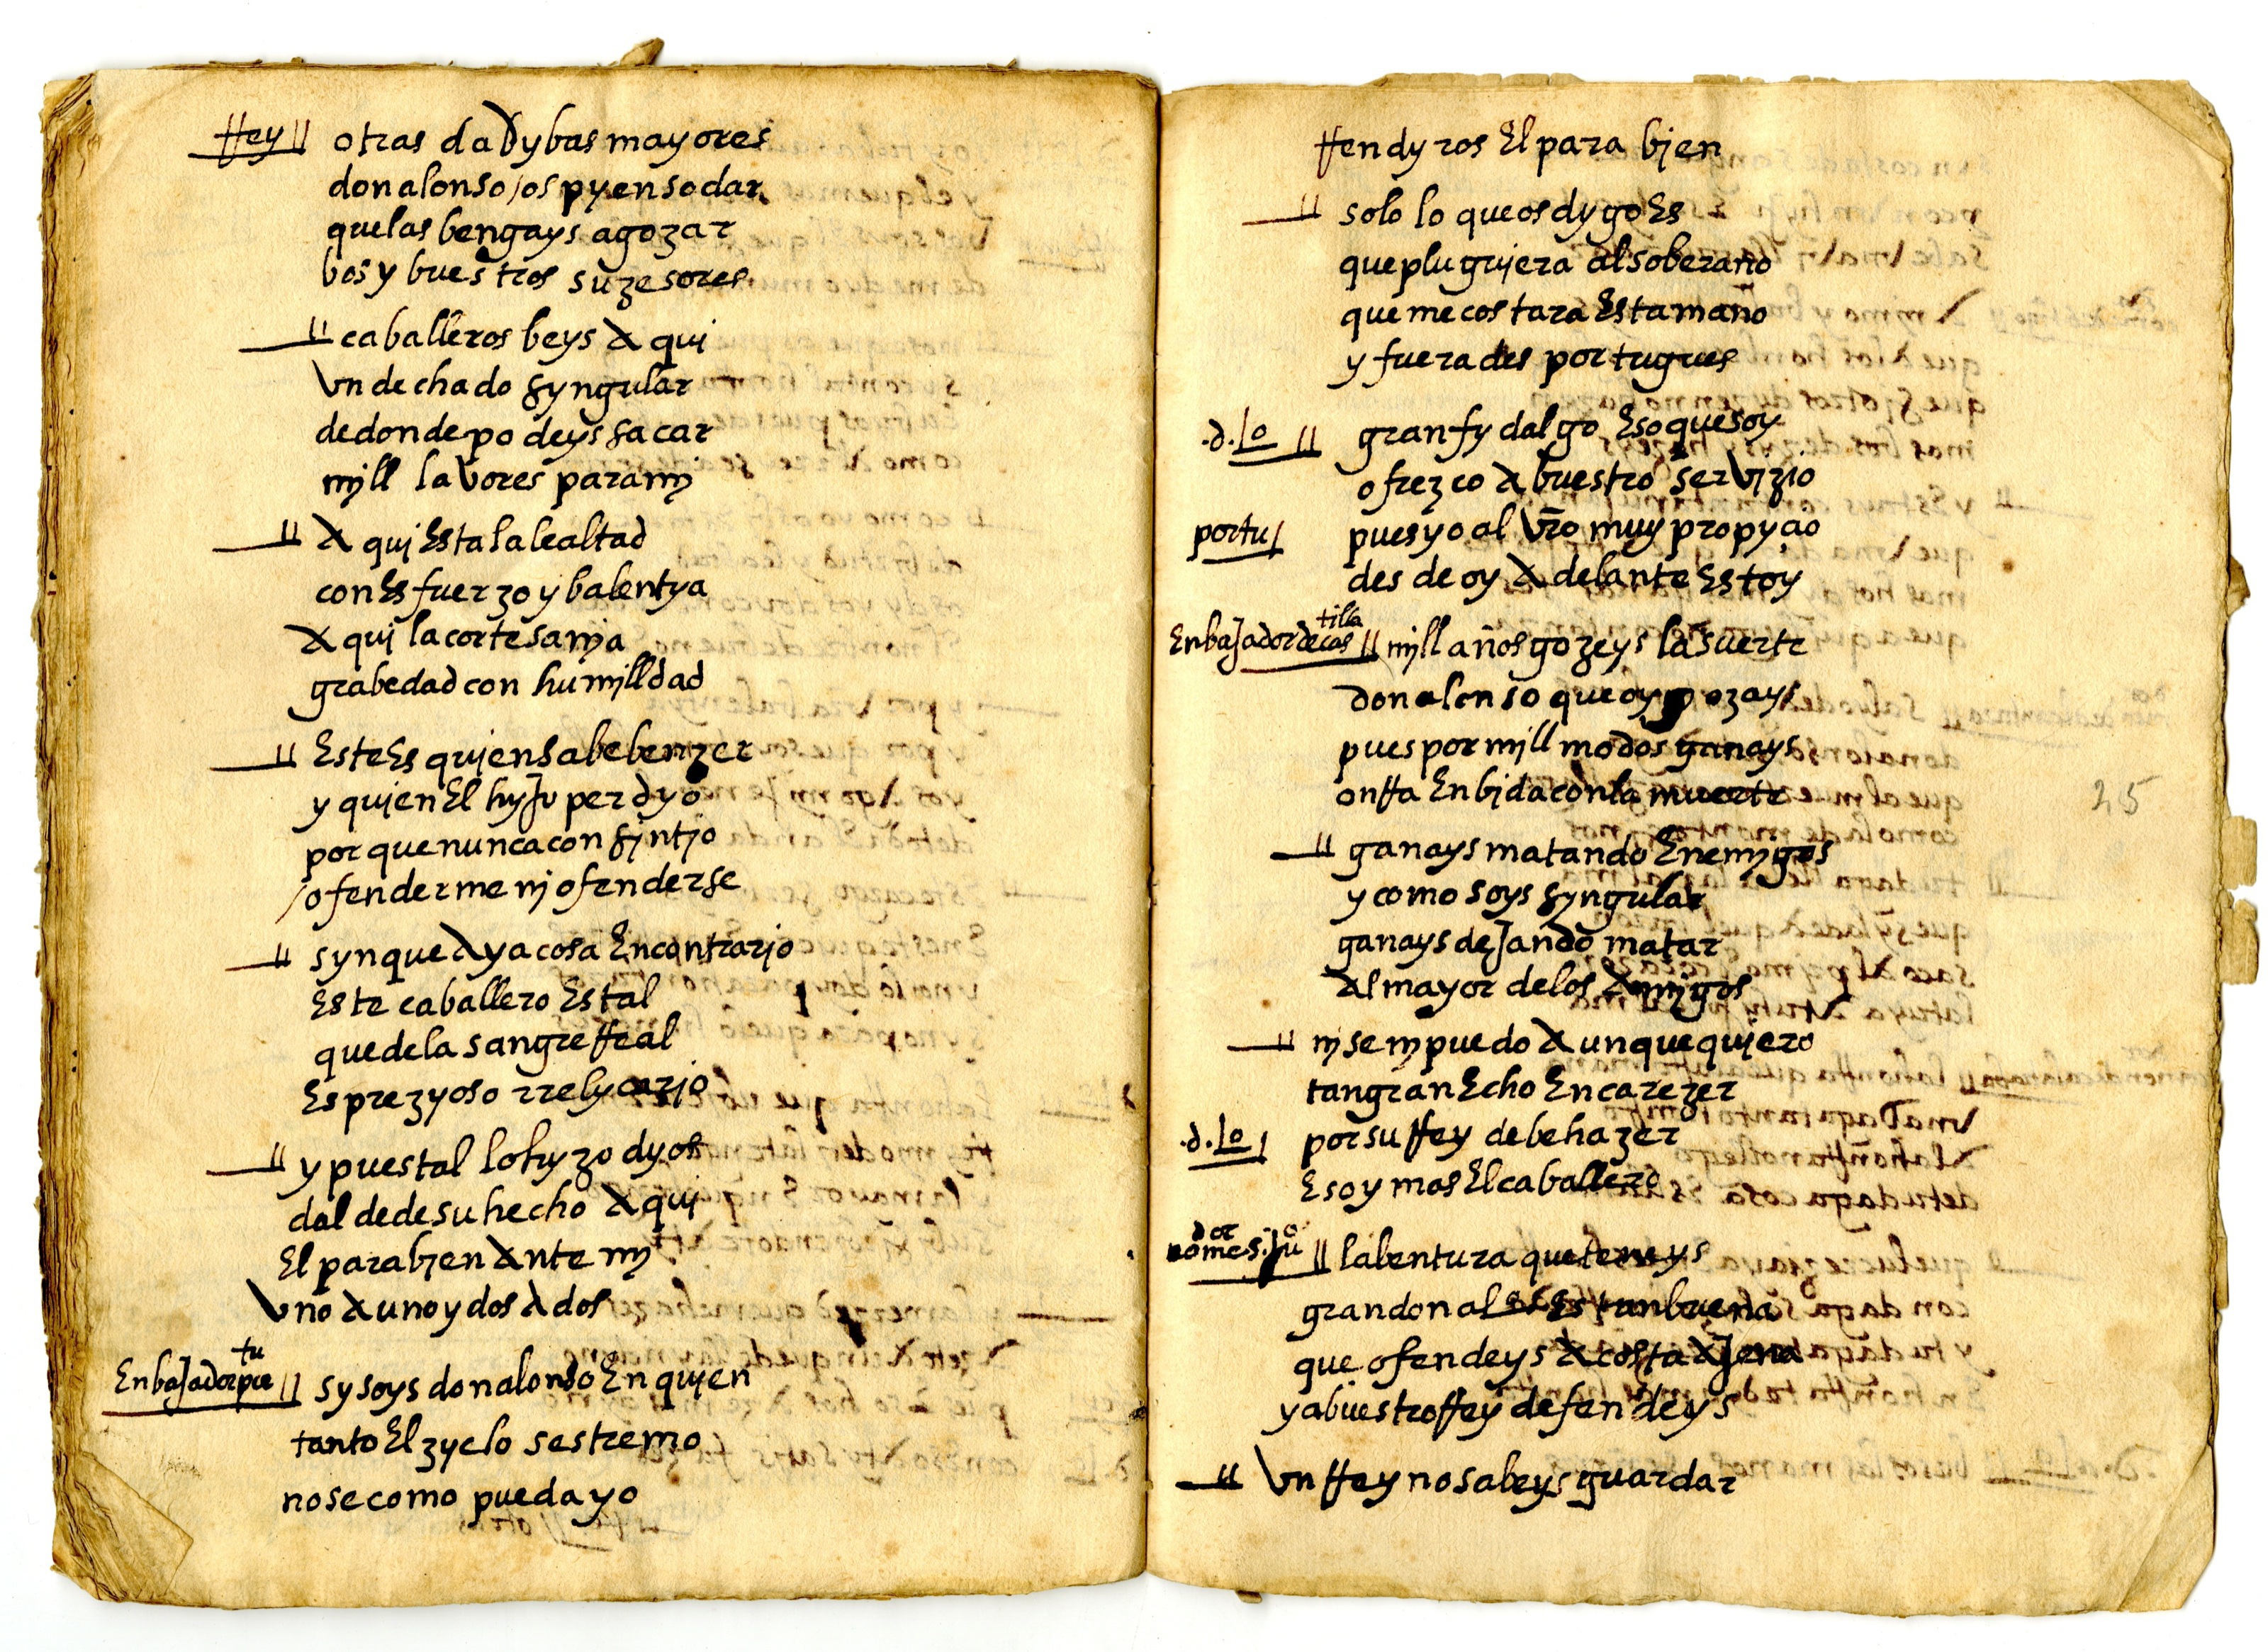 rrey // otras dadybas mayores
don alonso / os pyenso dar
que las bengays a gozar
bos y buestros suzesores
// caballeros beys aqui
un dechado syngular
de donde podeys sacar
mill lavores para mj
// aqui Esta la lealtad
con Esfuerzo y balentya
aqui la cortesanja
grabedad con humjlldad
// Este Es quien sabe benzer
y quien El hyJo perdyo
por que nunca consintio
/ofenderme nj ofenderse
// syn que aya cosa En contrario
Este caballero Es tal
que de la sangre rreal
Es prezyoso rrelycario
// y pues tal lo hyzo dyos
dalde de su hecho aqui
El parabien ante mj
uno a uno y dos a dos
EnbaJador por tu // sy soys don alonso En quien
tanto El zyelo sestremo
no se como pueda yo
rrendyros El para bien
// solo lo que os dygo Es
que pluguiera al soberano
que me costara Esta mano
y fuerades portugues
.d.lo // gran fydalgo Eso que soy
ofrezco a buestro servizio
portu/ pues yo al vro muy propyçio
desde oy a delante Estoy
EnbaJador de castilla // mjll años gozeys la suerte
don alonso que oy gozays
pues por mjll modos ganays
onrra En bida con la muerte
// ganays matando Enemjgos
y como soys syngular
ganays deJando matar
al mayor de los amjgos
// nj se nj puedo aunque quiero
tan gran Echo Encarezer
.d.lo / por su rrey debe hazer
Eso y mas El caballero
// la bentura que teneys
gran don al.o Es tan buena
que ofendeys a costa aJena
y a buestro rrey defendeys
// un rrey no sabeys guardar
25